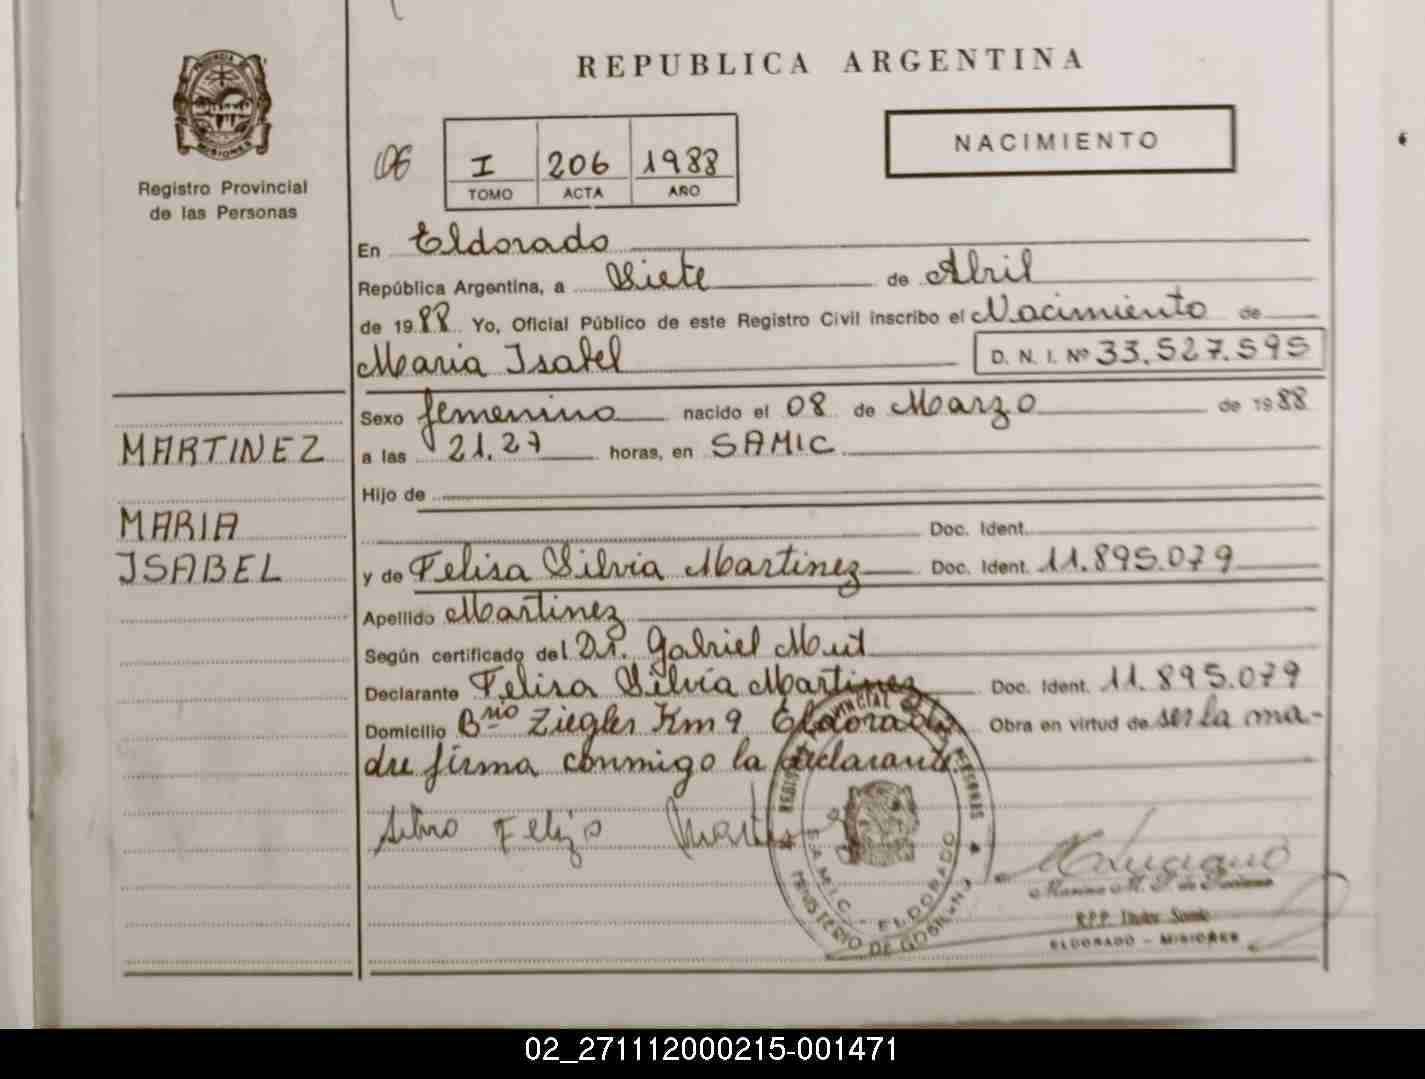 REPUBLICA ARGENTINA
PROVINCIA DE
MISIONES
Registro Provincial
de las Personas
06
I 206 1988
TOMO ACTA AÑO
NACIMIENTO
En Eldorado
República Argentina, a Siete de Abril
de 1988 Yo, Oficial Público de este Registro Civil inscribo el Nacimiento de
Maria Isabel D. N. I. Nº 33.527.595
Sexo femenino nacido el 08 de Marzo de 1988
MARTINEZ
a las 21.27 horas, en SAMIC
Hijo de
MARIA
Doc. Ident.
ISABEL
y de Felisa Silvia Martinez Doc. Ident. 11.895.079
Apellido Martinez
Según certificado del Dr. Gabriel Mut
Declarante Felisa Silvia Martinez Doc. Ident. 11.895.079
Domicilio Brio Ziegler Km 9 Eldorado Obra en virtud de ser la ma-
dre firma conmigo la declarante.
Silvia Feliza Mart
S.A.M.I.C. - ELDORADO
MINISTERIO DE GOBIERNO
R.P.P.
ELDORADO - MISIONES
02_271112000215-001471